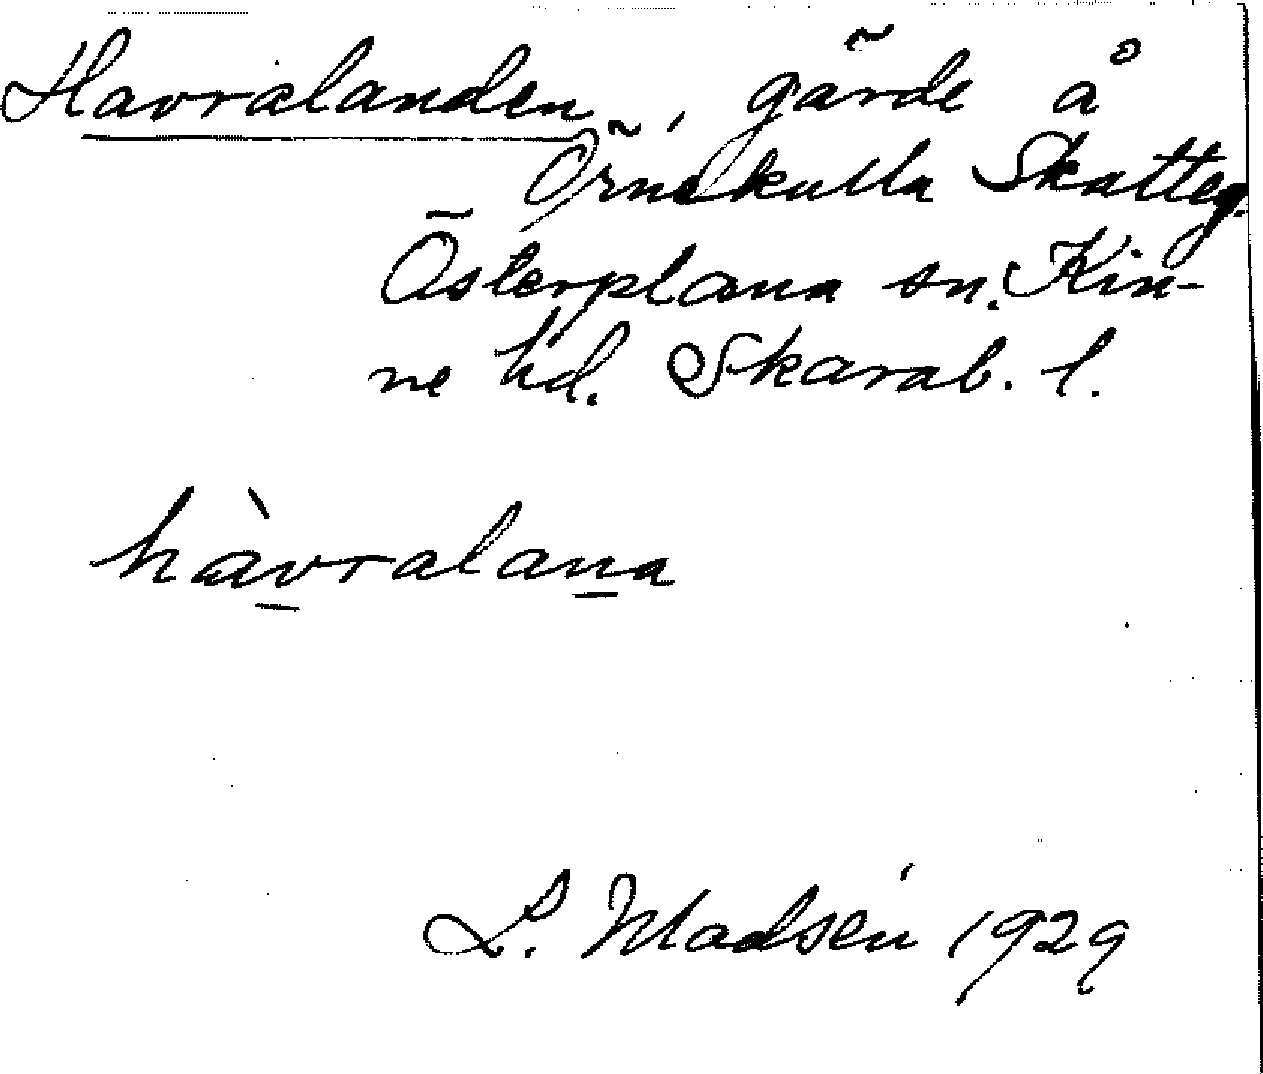 Havralanden, gärde å
Örnekulla Skatteg.
Österplana sn. Kin-
ne hd. Skarab. l.
hàvralana
L. Madsén 1929